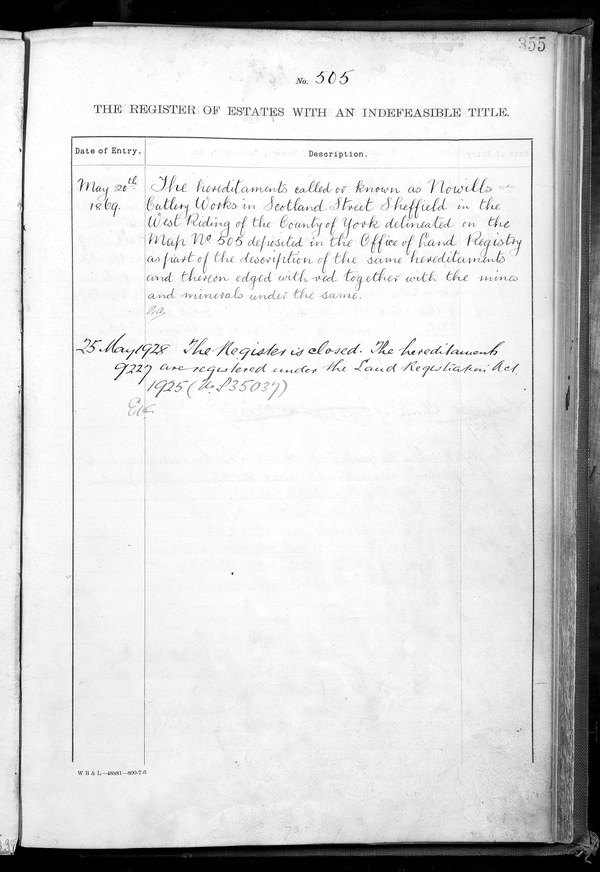 355
No. 505
THE REGISTER OF ESTATES WITH AN INDEFEASIBLE TITLE.
Date of Entry. Description.
May 20th The hereditaments called or known as Nowills
1869. Cutlery Works in Scotland Street Sheffield in the
West Riding of the County of York delineated on the
Map No 505 deposited in the Office of Land Registry
as part of the description of the same hereditaments
and thereon edged with red together with the mines
and minerals under the same.
25 May 1928 The Register is closed. The hereditaments
9227 are registered under the Land Registration Act
1925 (No. L35037)
W B & L—46881—800-7-6